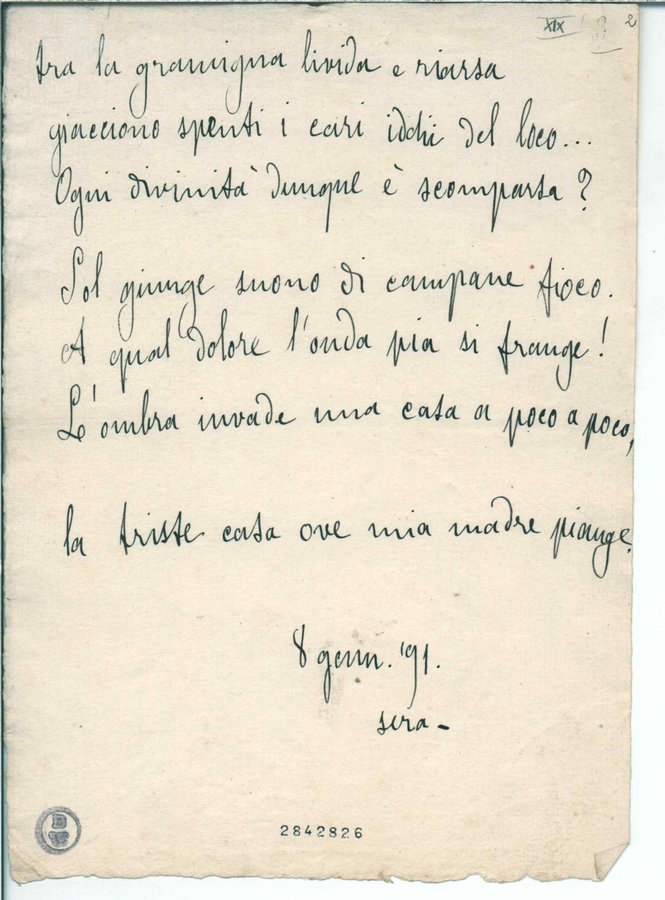 XIX 2
tra la gramigna livida e riarsa
giacciono spenti i cari iddii del loco...
Ogni divinità dunque è scomparsa?
Sol giunge suono di campane fioco.
A qual dolore l'onda pia si frange!
L'ombra invade una casa a poco a poco,
la triste casa ove mia madre piange.
8 genn. '91.
sera-
2842826